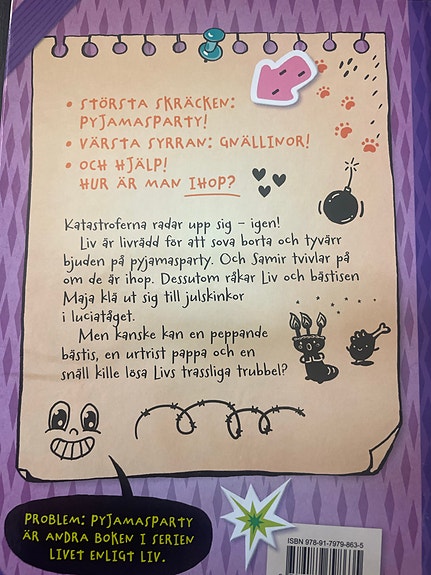 • STÖRSTA SKRÄCKEN:
PYJAMASPARTY!
• VÄRSTA SYRRAN: GNÄLLINOR!
• OCH HJÄLP!
HUR ÄR MAN IHOP?
Katastroferna radar upp sig – igen!
Liv är livrädd för att sova borta och tyvärr
bjuden på pyjamasparty. Och Samir tvivlar på
om de är ihop. Dessutom råkar Liv och bästisen
Maja klä ut sig till julskinkor
i luciatåget.
Men kanske kan en peppande
bästis, en urtrist pappa och en
snäll kille lösa Livs trassliga trubbel?
PROBLEM: PYJAMASPARTY
ÄR ANDRA BOKEN I SERIEN
LIVET ENLIGT LIV.
ISBN 978-91-7979-863-5